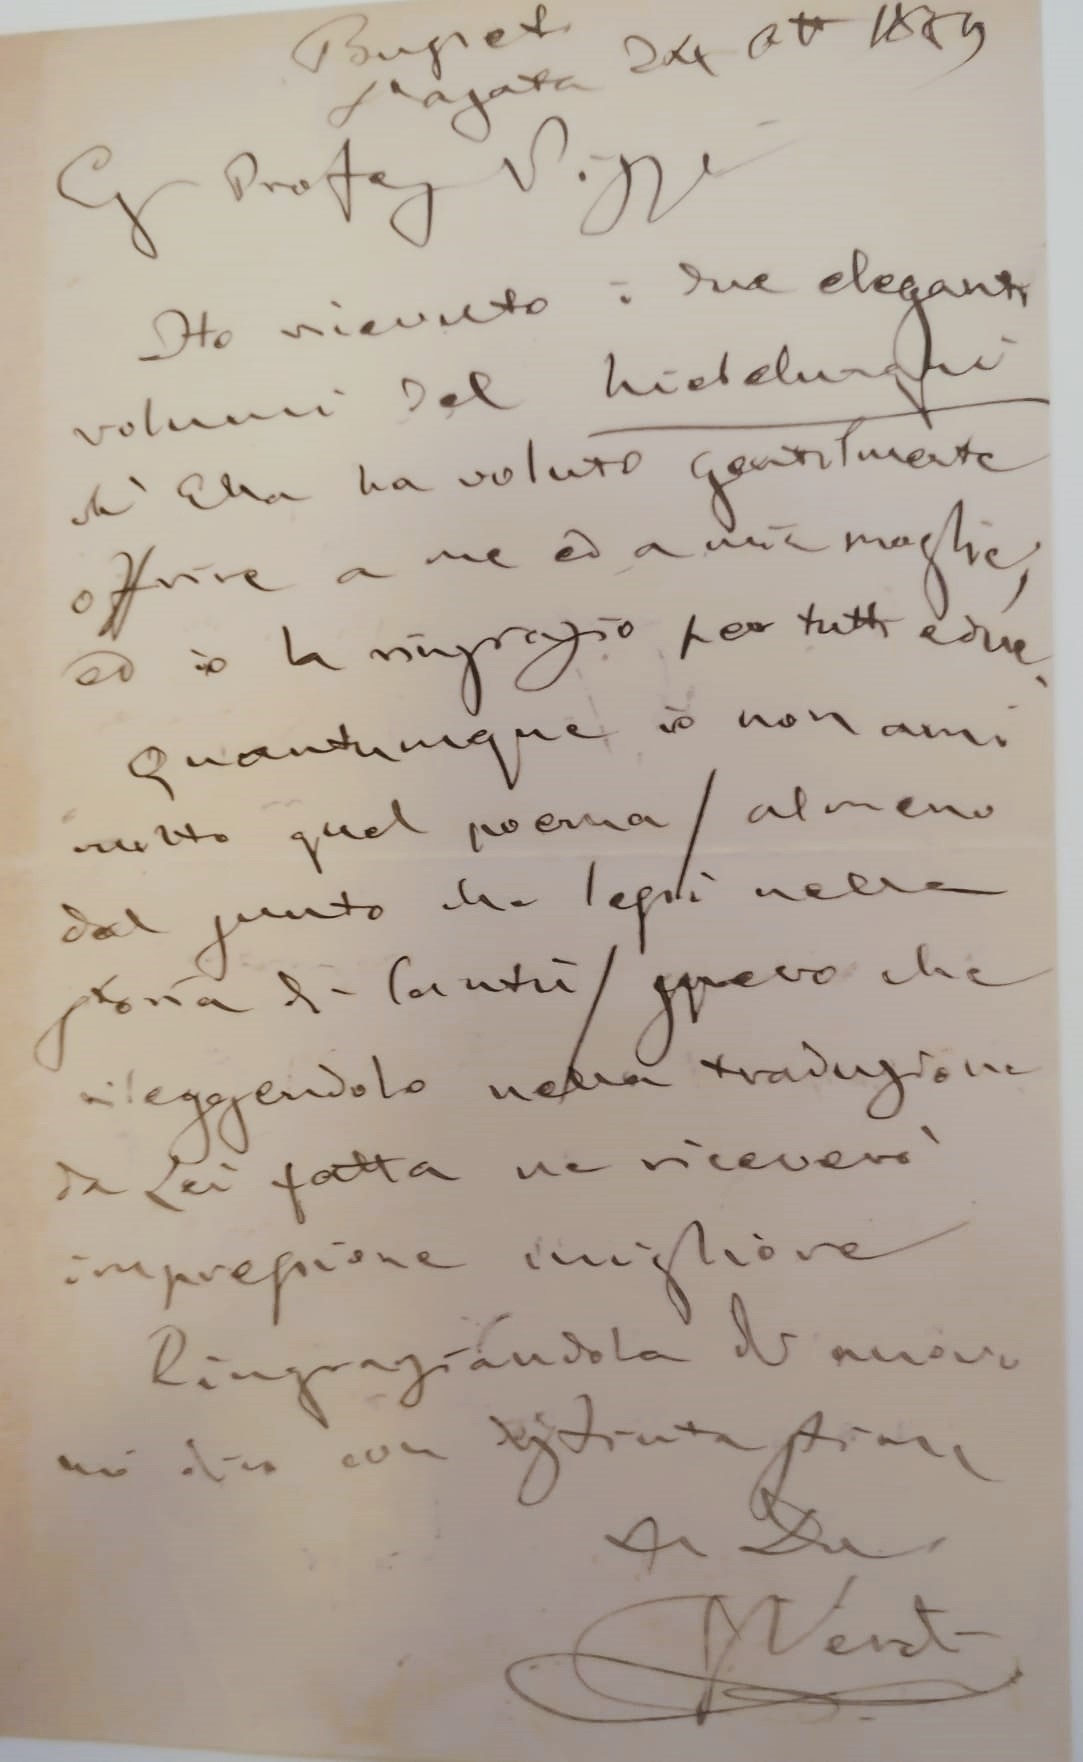 Busseto
S. Agata 24 Ott 1889
Eg Profes Pizzi
Ho ricevuto i due eleganti
volumi del
ch' Ella ha voluto gentilmente
offrire a me ed a mia moglie,
ed io la ringrazio per tutti e due.
Quantunque io non ami
molto quel poema / almeno
dal punto che lessi nella
storia di Cantù / spero che
rileggendolo nella traduzione
da Lei fatta ne riceverò
impressione migliore
Ringraziandola di nuovo
mi dico con distinta stima
G Verdi